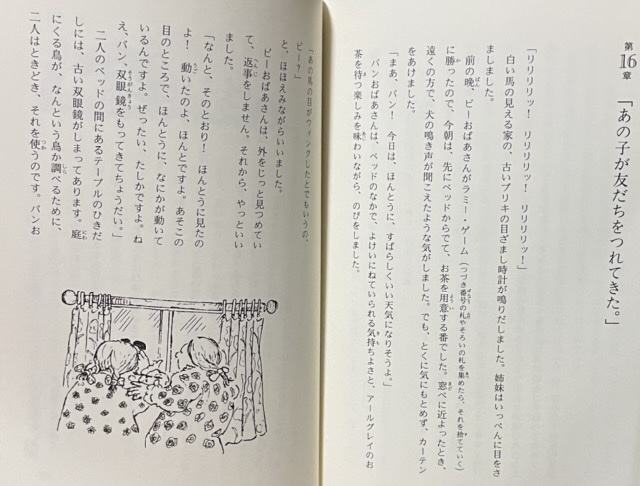 第16章
「あの子が友だちをつれてきた。」
「リリリリッ! リリリリッ! リリリリッ!」
白い馬の見える家の、古いブリキの目ざまし時計が鳴りだしました。姉妹はいっぺんに目をさ
ましました。
前の晩、ビーおばあさんがラミー・ゲーム(つづき番号の札やそろいの札を集めたら、それを捨てていく)
に勝ったので、今朝は、先にベッドからでて、お茶を用意する番でした。窓べに近よったとき、
遠くの方で、犬の鳴き声が聞こえたような気がしました。でも、とくに気にもとめず、カーテン
をあけました。
「まあ、バン! 今日は、ほんとうに、すばらしくいい天気になりそうよ。」
バンおばあさんは、ベッドのなかで、よけいにねていられる気持ちよさと、アールグレイのお
茶を待つ楽しみを味わいながら、のびをしました。
「あの馬の目がウィンクしたとでもいうの、
ビー?」
と、ほほえみながらいいました。
ビーおばあさんは、外をじっと見つめてい
て、返事をしません。それから、やっといい
ました。
「なんと、そのとおり! ほんとうに見たの
よ! 動いたのよ、ほんとですよ。あそこの
目のところで、ほんとうに、なにかが動いて
いるんですよ。ぜったい、たしかですよ。ね
え、バン、双眼鏡をもってきてちょうだい。」
二人のベッドの間にあるテーブルのひきだ
しには、古い双眼鏡がしまってあります。庭
にくる鳥が、なんという鳥か調べるために、
二人はときどき、それを使うのです。バンお